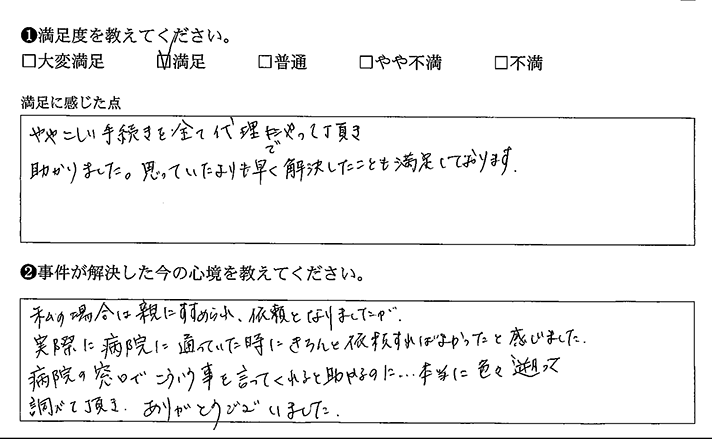 ❶満足度を教えてください。
□大変満足 ☑満足 □普通 □やや不満 □不満
満足に感じた点
ややこしい手続きを全て代理でやって頂き
助かりました。思っていたよりも早く解決したことも満足しております.
❷事件が解決した今の心境を教えてください。
私の場合は親にすすめられ、依頼となりましたが.
実際に病院に通っていた時にきちんと依頼すればよかったと感じました.
病院の窓口でこういう事を言ってくれると助かるのに…本当に色々遡って
調べて頂き. ありがとうございました.